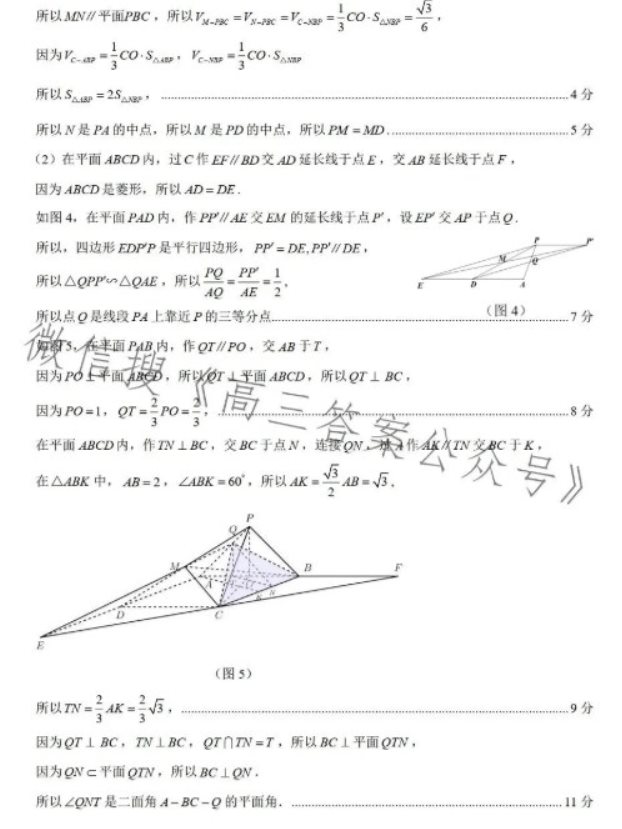 所以 MN∥平面PBC，所以 V_{M-PBC} = V_{N-PBC} = V_{C-NBP} = \frac{1}{3}CO·S_{△NBP} = \frac{\sqrt{3}}{6}，
因为 V_{C-ABP} = \frac{1}{3}CO·S_{△ABP}，V_{C-NBP} = \frac{1}{3}CO·S_{△NBP}
所以 S_{△ABP} = 2S_{△NBP}，……4 分
所以 N 是 PA 的中点，所以 M 是 PD 的中点，所以 PM = MD．……5 分
（2）在平面 ABCD 内，过 C 作 EF∥BD 交 AD 延长线于点 E，交 AB 延长线于点 F，
因为 ABCD 是菱形，所以 AD = DE．
如图 4，在平面 PAD 内，作 PP′∥AE 交 EM 的延长线于点 P′，设 EP′ 交 AP 于点 Q．
所以，四边形 EDP′P 是平行四边形，PP′ = DE, PP′∥DE，
所以 △QPP′∽△QAE，所以 \frac{PQ}{AQ} = \frac{PP′}{AE} = \frac{1}{2}，
P P′
M Q
E D A
（图 4）
所以点 Q 是线段 PA 上靠近 P 的三等分点……7 分
如图5，在平面 PAB 内，作 QT∥PO，交 AB 于 T，
因为 PO⊥平面 ABCD，所以 QT⊥平面 ABCD，所以 QT⊥BC，
因为 PO = 1，QT = \frac{2}{3}PO = \frac{2}{3}，……8 分
在平面 ABCD 内，作 TN⊥BC，交 BC 于点 N，连接 QN，过 A 作 AK∥TN 交 BC 于 K，
在 △ABK 中，AB = 2，∠ABK = 60°，所以 AK = \frac{\sqrt{3}}{2}AB = \sqrt{3}，
微信搜《高三答案公众号》
P
Q
M A B F
K N
D C
E
（图 5）
所以 TN = \frac{2}{3}AK = \frac{2}{3}\sqrt{3}，……9 分
因为 QT⊥BC，TN⊥BC，QT∩TN = T，所以 BC⊥平面 QTN，
因为 QN⊂平面 QTN，所以 BC⊥QN．
所以 ∠QNT 是二面角 A－BC－Q 的平面角．……11 分